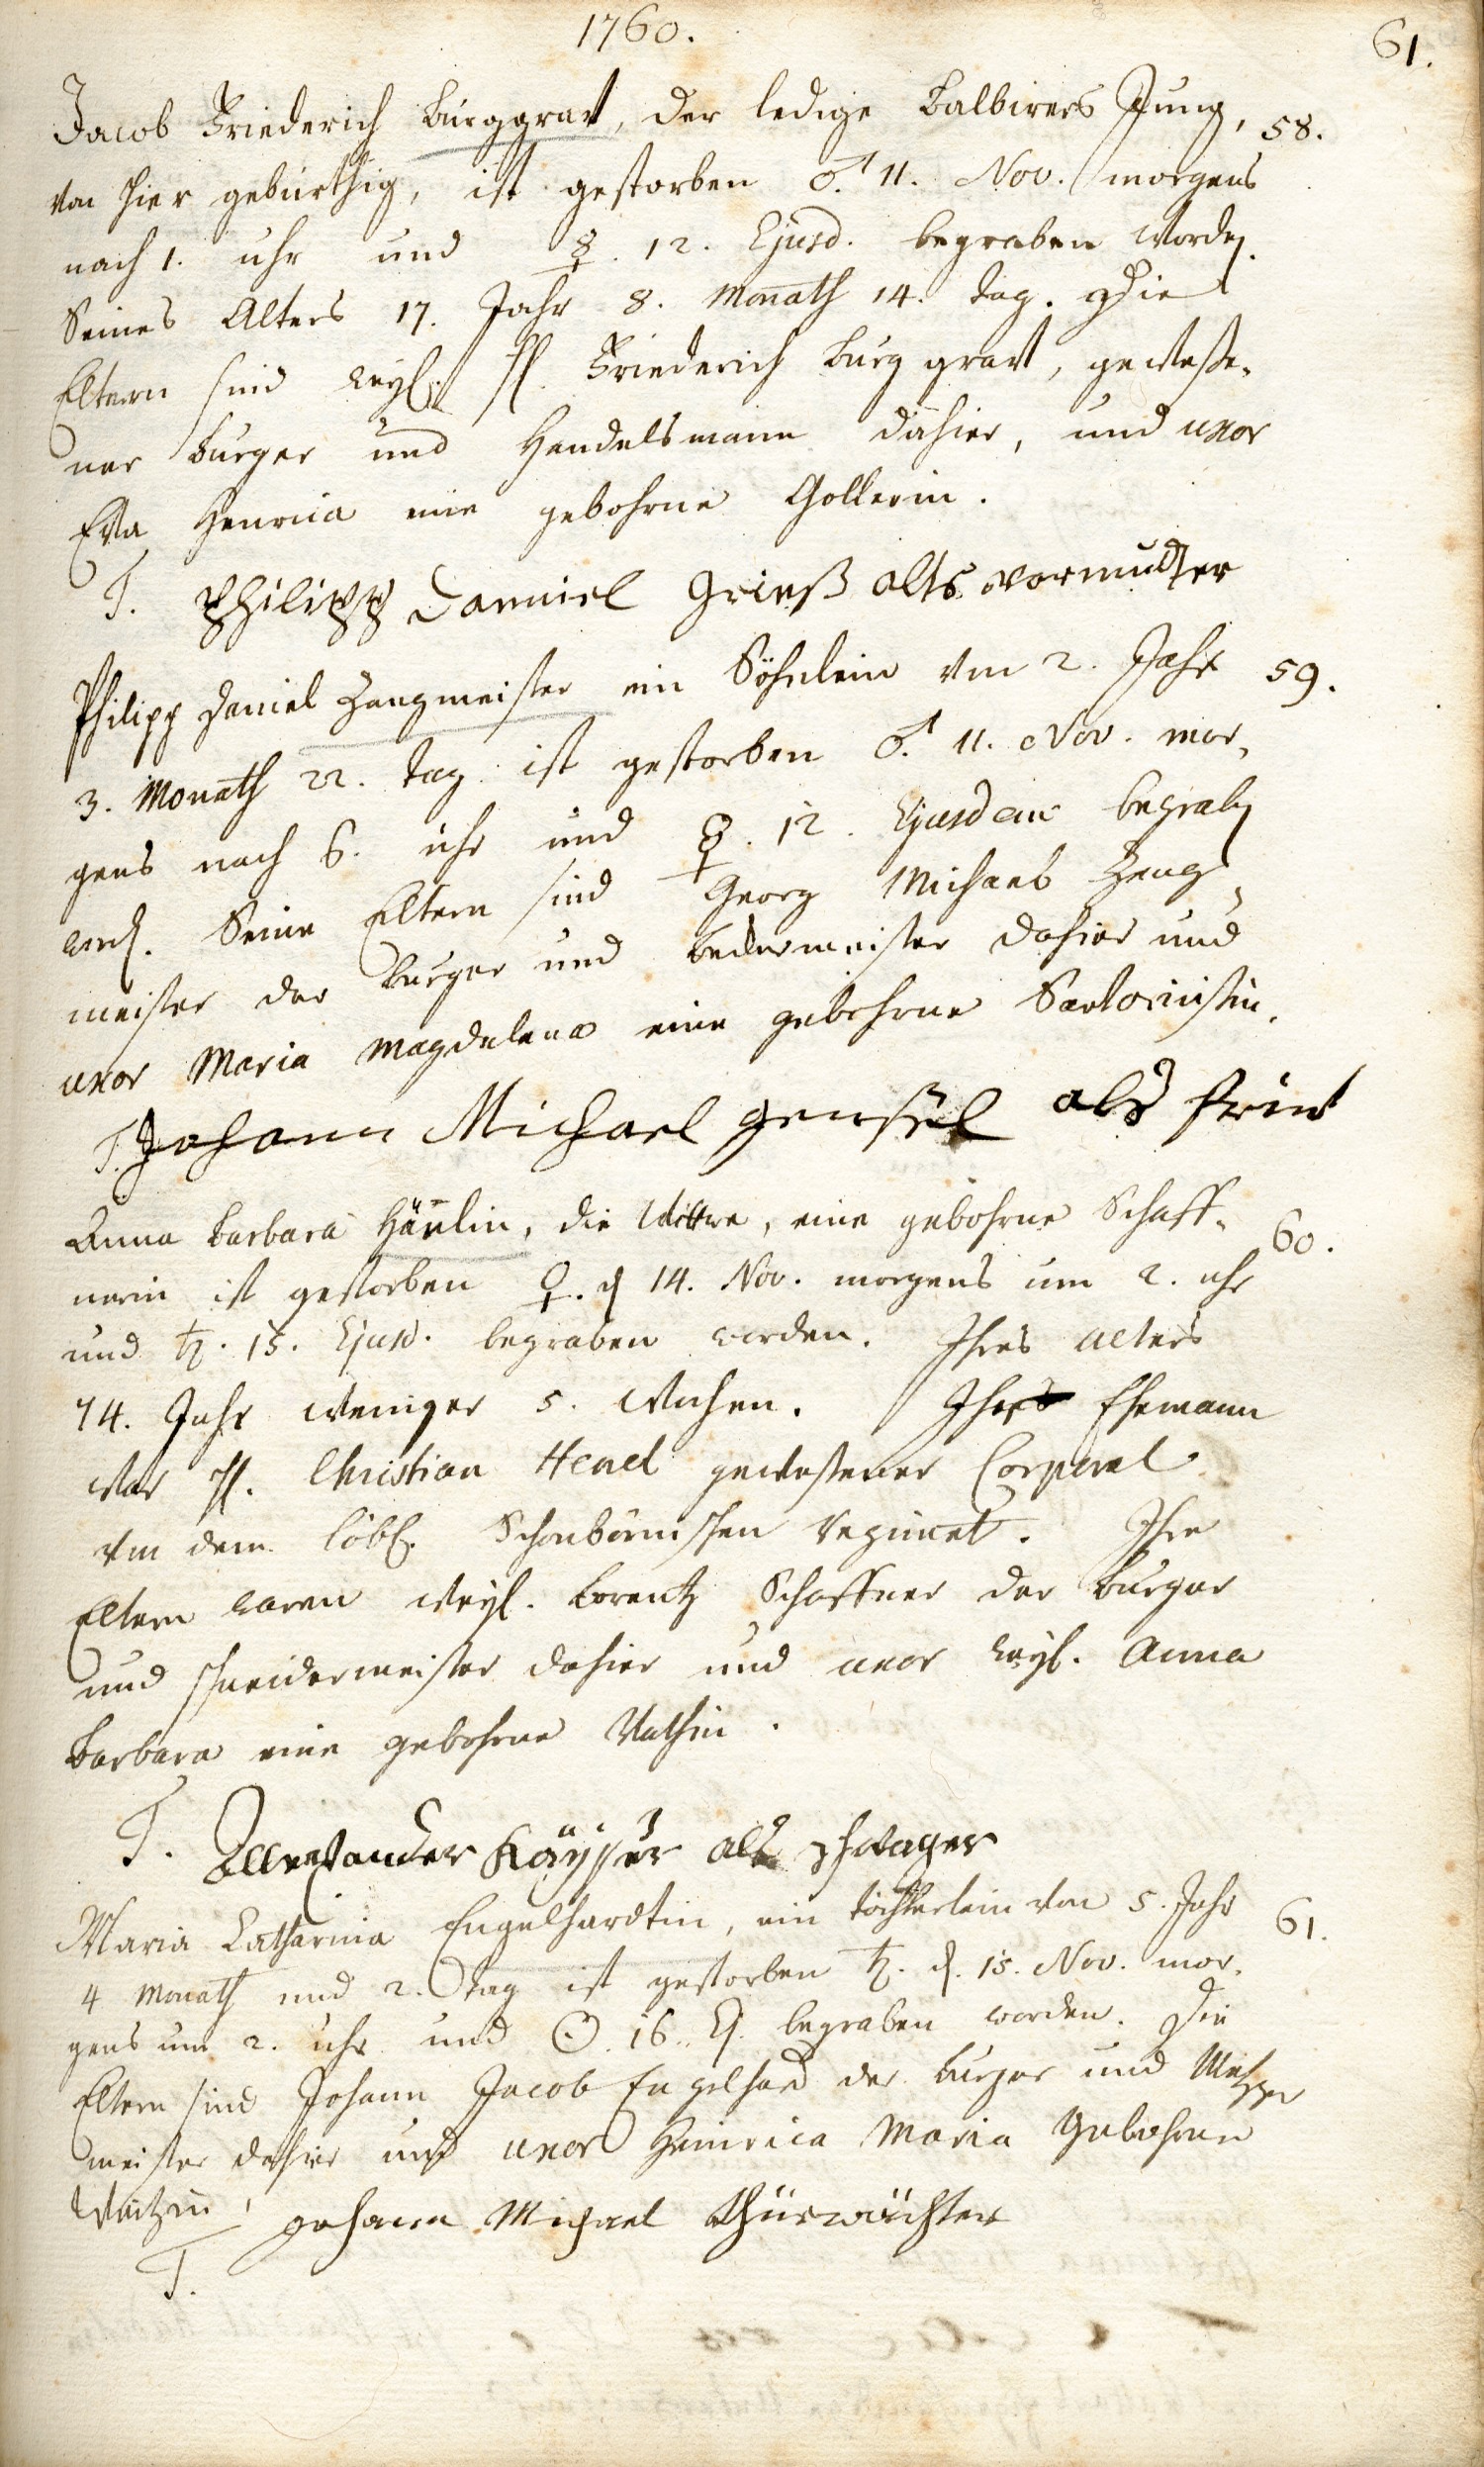 1760.
61.
Jacob Friederich Burggrav, der ledige Balbirers Jung, 58.
von hier gebürthig, ist gestorben ♂. 11. Nov. morgens
nach 1. uhr und ☿. 12. Ejusd. begraben worden.
Seines Alters 17. Jahr 8. Monath 14. tag. Die
Eltern sind weyl. H. Friederich Burggrav, gewese-
ner burger und Handelsmann dahier, und uxor
Eva Henrica eine gebohrne Gollerin.
T. Philipp Danniel Grieß alts vormudter
Philipp Daniel Zangmeister ein Söhnlein von 2. Jahr 59.
3. Monath 22. tag ist gestorben ♂. 11. Nov. mor-
gens nach 6. uhr und ☿. 12. Ejusdem begraben
word. Seine Eltern sind Georg Michael Zang-
meister der burger und Bedermeister dahier und
uxor Maria Magdalena eine gebohrne Sartoriusin.
T. Johann Michael gensel als freint
Anna Barbara Hänlin, die Wittwe, eine gebohrne Schaff- 60.
nerin ist gestorben ♀. d 14. Nov. morgens um 2. uhr
und ♄. 15. Ejusd. begraben worden. Ihres alters
74. Jahr weniger 5. Wochen. Ihr Ehemann
war H. Christian Henel gewesener Corporal
von dem löbl. Schönbornischen regiment. Ihre
Eltern waren weyl. Lorentz Schaffner der burger
und schneidermeister dahier und uxor weyl. Anna
Barbara eine gebohrne Rathin.
T. Allexander Käysser als schwager
Maria Catharina Engelhardtin, ein töchterlein von 5. Jahr 61.
4 Monath und 2. tag ist gestorben ♄. d. 15. Nov. mor-
gens um 2. uhr und ☉. 16. Ej. begraben worden. Die
Eltern sind Johann Jacob Engelhard der burger und Metzger
meister dahier und uxor Heinrica Maria gebohrne
Weitzin
T. Johann Michael thürwächter